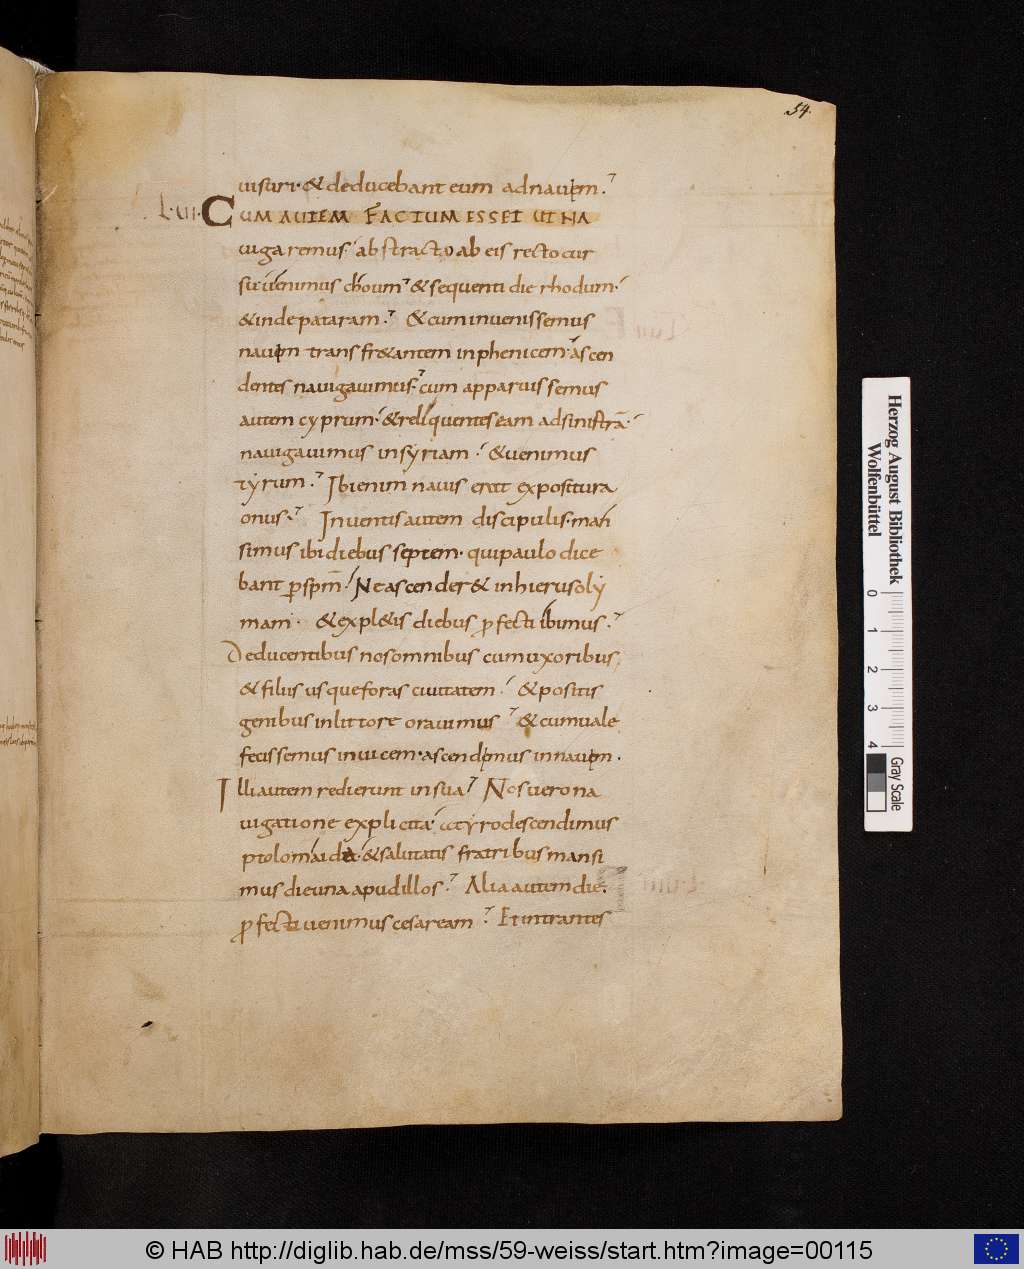 54.
uisuri· & deducebant eum adnauem.
L·UI· CUM AUTEM FACTUM ESSET UT NA
uigaremus· abstracto ab eis recto cur
su uenimus choum· & sequenti die rhodum·
& inde pataram· & cum inuenissemus
nauem trans fr&antem in phenicem· ascen
dentes nauigauimus· cum apparuissemus
autem cyprum· & relinquentes eam ad sinistrā·
nauigauimus in syriam· & uenimus
tyrum· Ibi enim nauis erat expositura
onus· Inuentis autem discipulis· man
simus ibi diebus septem· qui paulo dice
bant p spm̄· Ne ascender& in hierusoly
mam· & expl&is diebus pfecti ibimus·
Deducentibus nos omnibus cum uxoribus,
& filiis usque foras ciuitatem· & positis
genibus in littore orauimus & cum uale
fecissemus inuicem· ascendemus in nauem·
Illi autem redierunt in sua· Nos uero na
uigatione explicita· a tyro descendimus
ptolomaida· & salutatis fratribus mansi
mus die una apud illos· Alia autem die·
pfecti uenimus cesaream· Et intrantes
Herzog August Bibliothek
Wolfenbüttel
0 1 2 3 4
Gray Scale
© HAB http://diglib.hab.de/mss/59-weiss/start.htm?image=00115